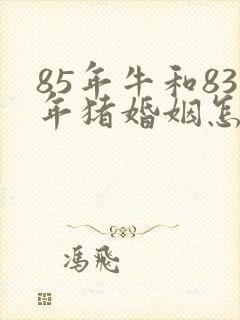 85年牛和83
年猪婚姻怎
冯飛